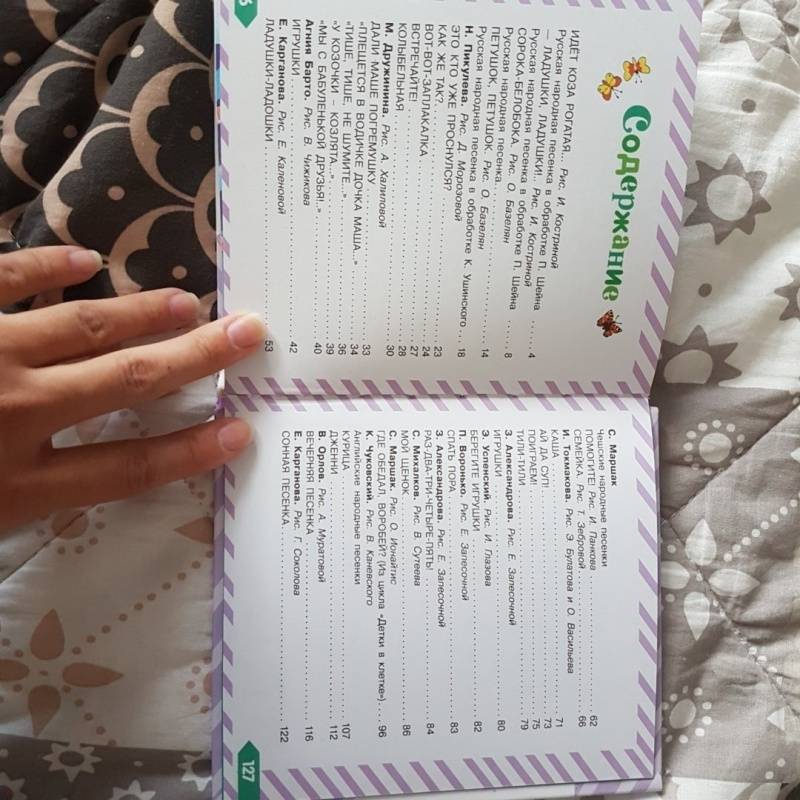 Содержание
ИДЁТ КОЗА РОГАТАЯ... Рис. И. Костриной
Русская народная песенка в обработке П. Шейна
— ЛАДУШКИ, ЛАДУШКИ!.. Рис. И. Костриной
Русская народная песенка . . . 4
СОРОКА-БЕЛОБОКА. Рис. О. Базелян
Русская народная песенка в обработке П. Шейна . . . 8
ПЕТУШОК, ПЕТУШОК. Рис. О. Базелян
Русская народная песенка . . . 14
Н. Пикулева. Рис. Д. Морозовой
ЭТО КТО УЖЕ ПРОСНУЛСЯ?
КАК ЖЕ ТАК? . . . 23
ВОТ-ВОТ-ЗАПЛАКАЛКА . . . 24
ВСТРЕЧАЙТЕ! . . . 27
КОЛЫБЕЛЬНАЯ . . . 28
М. Дружинина. Рис. А. Халиловой
ДАЛИ МАШЕ ПОГРЕМУШКУ . . . 30
«ПЛЕЩЕТСЯ В ВОДИЧКЕ ДОЧКА МАША...» . . . 33
«ТИШЕ, ТИШЕ, НЕ ШУМИТЕ...» . . . 34
«У КОЗОЧКИ – КОЗЛЯТА...» . . . 36
«МЫ С БАБУЛЕНЬКОЙ ДРУЗЬЯ!..» . . . 39
Агния Барто. Рис. В. Чижикова . . . 40
ИГРУШКИ . . . 42
Е. Карганова. Рис. Е. Каленовой
ЛАДУШКИ-ЛАДОШКИ . . . 53
С. Маршак
Чешские народные песенки
ПОМОГИТЕ! Рис. И. Панкова . . . 62
СЕМЕЙКА. Рис. Т. Зебровой . . . 66
И. Токмакова. Рис. Э. Булатова и О. Васильева
КАША . . . 71
АЙ ДА СУП! . . . 73
ПОИГРАЕМ! . . . 75
ТИЛИ-ТИЛИ . . . 79
З. Александрова. Рис. Е. Запесочной
ИГРУШКИ . . . 80
Э. Успенский. Рис. И. Глазова
БЕРЕГИТЕ ИГРУШКИ . . . 82
П. Воронько. Рис. Е. Запесочной
СПАТЬ ПОРА . . . 83
З. Александрова. Рис. Е. Запесочной
РАЗ-ДВА-ТРИ-ЧЕТЫРЕ-ПЯТЬ! . . . 84
С. Михалков. Рис. В. Сутеева
МОЙ ЩЕНОК . . . 86
С. Маршак. Рис. О. Ионайтис
ГДЕ ОБЕДАЛ, ВОРОБЕЙ? (Из цикла «Детки в клетке») . . . 96
К. Чуковский. Рис. В. Каневского
Английские народные песенки
КУРИЦА . . . 107
ДЖЕННИ . . . 112
В. Орлов. Рис. А. Муратовой
ВЕЧЕРНЯЯ ПЕСЕНКА . . . 116
Е. Карганова. Рис. Г. Соколова
СОННАЯ ПЕСЕНКА . . . 122
127